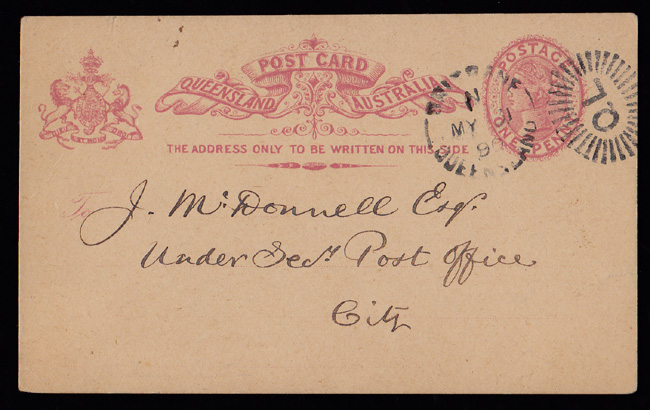 POST CARD
QUEENSLAND AUSTRALIA
DIEU ET MON DROIT
THE ADDRESS ONLY TO BE WRITTEN ON THIS SIDE
POSTAGE
ONE PENNY
BRISBANE
MY
QUEENSLAND
To
J. McDonnell Esqr.
Under Secy. Post Office
City